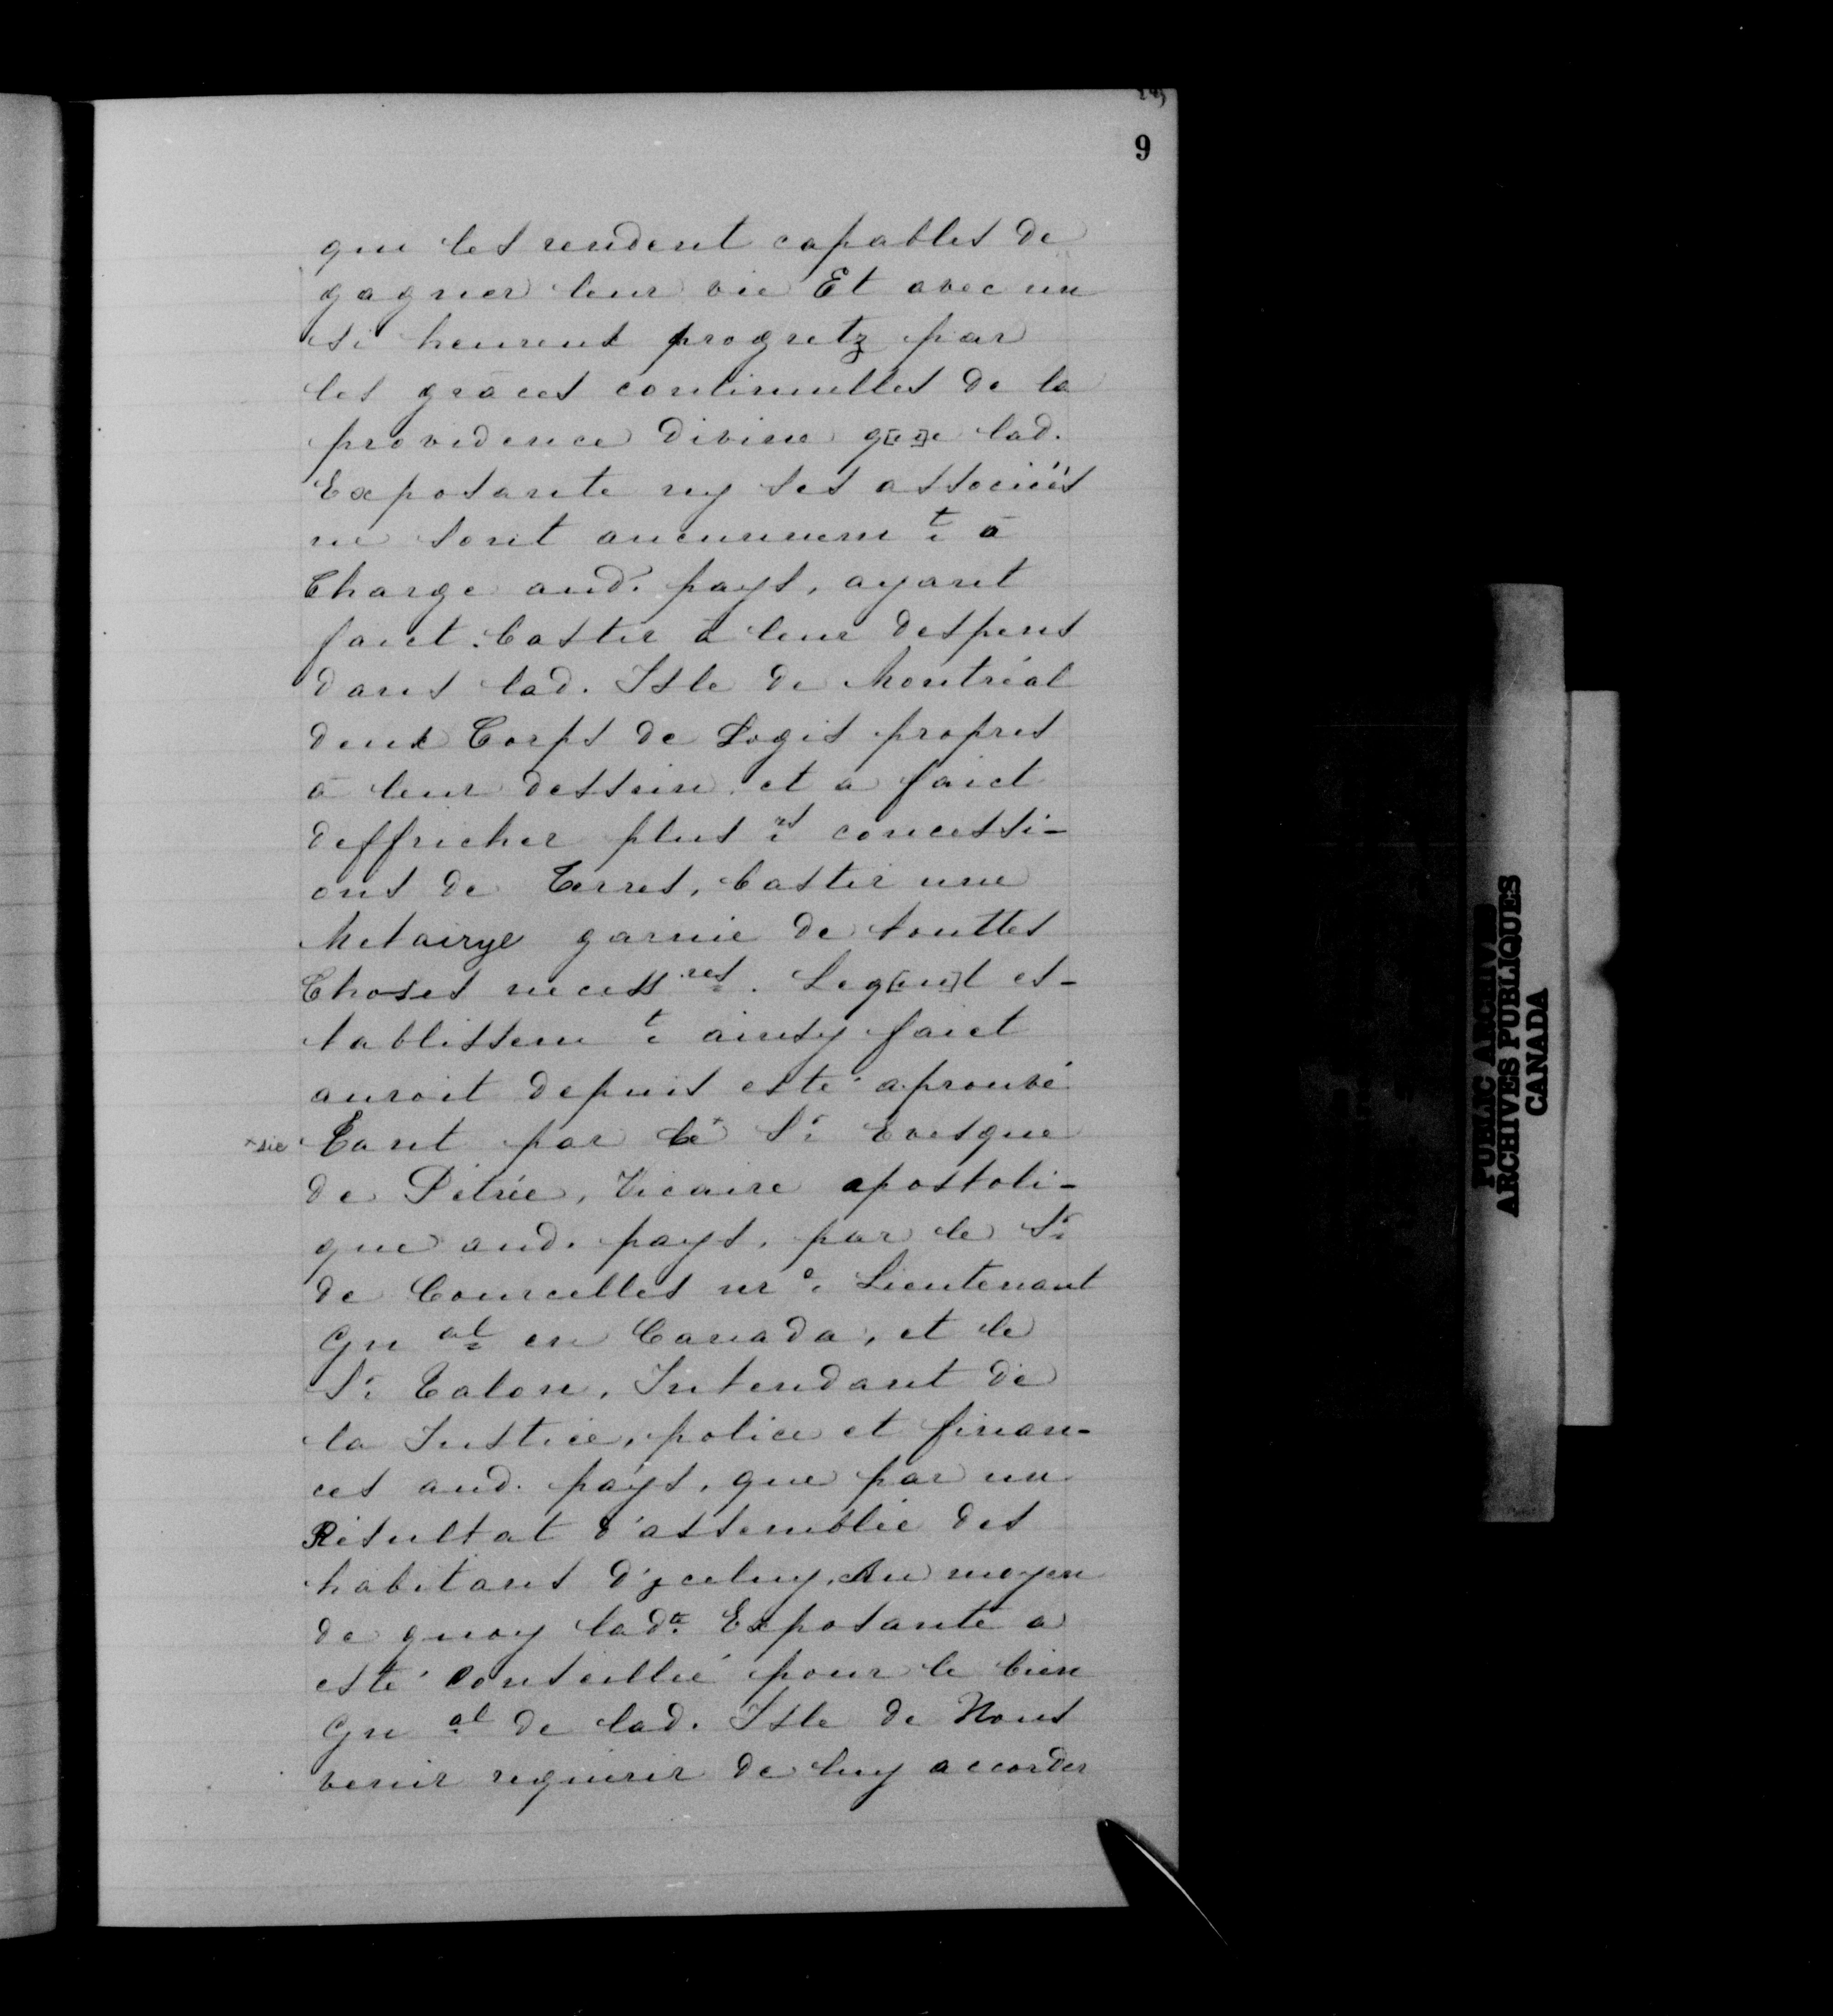 9
que les rendent capables de
gagner leur vie Et avec un
si heureux progretz par
les graces continuelles de la
providence Divine q[u]e lad.
Exposante ny ses associées
ne sont aucunemt à
Charge aud. pays, ayant
faict bastir à leur despens
dans lad. Isle de Montréal
deux Corps de Logis propres
à leur dessein et a faict
deffricher plusrs concessi-
ons de Terres, bastir une
Metairye garnie de touttes
Choses necessres. Leq[ue]l es-
tablissemt ainsy faict
auroit depuis esté aprouvé
+ sic Tant par le+ Sr Evesque
de Pétrée, Vicaire apostoli-
que aud. pays, par le Sr
de Courcelles nre Lieutenant
Gnal en Canada, et le
Sr Talon, Intendant de
la Justice, police et finan-
ces aud. pays, que par un
Résultat d'assemblée des
habitans d'yceluy. Au moyen
de quoy lade Exposante a
esté Conseillée pour le bien
Gnal de lad. Isle de Nous
venir requerir de luy accorder
PUBLIC ARCHIVES
ARCHIVES PUBLIQUES
CANADA